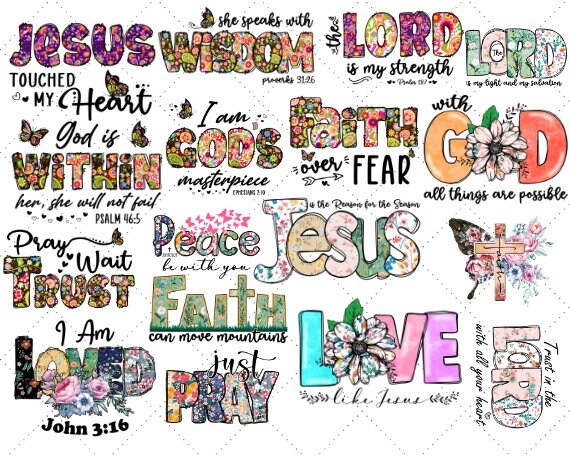 JESUS
TOUCHED
MY Heart
she speaks with
WISDOM
proverbs 31:26
the LORD
is my strength
Psalm 118:7
The
LORD
is my light and my salvation
God is
WITHIN
her, she will not fail
PSALM 46:5
I am
GODS
masterpiece
EPHESIANS 2:10
FAITH
over FEAR
with
GOD
all things are possible
Pray
Wait
TRUST
Peace
be with you
is the Reason for the Season
JESUS
FAITH
can move mountains
I Am
LOVED
John 3:16
just
PRAY
LOVE
like Jesus
Trust in the
LORD
with all your heart